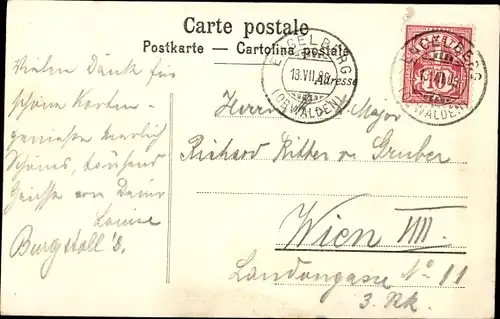 Carte postale
Postkarte – Cartolina postale
Adresse
ENGELBERG
13.VII.
(OBWALDEN)
ENGELBERG
(OBWALDEN)
10
Vielen Dank für
schöne Karten
herrlich
von Deiner
Louise
Burgstall's.
Herrn Major
Richard Ritter v. Gruber
Wien VIII.
Landongasse No 11
3. Stk.